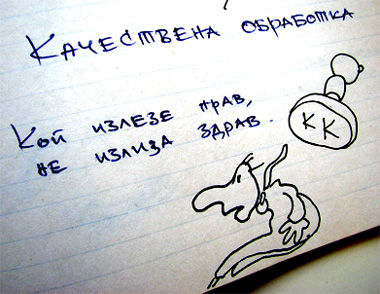 Качествена обработка
Кой излезе прав,
не излиза здрав.
КК